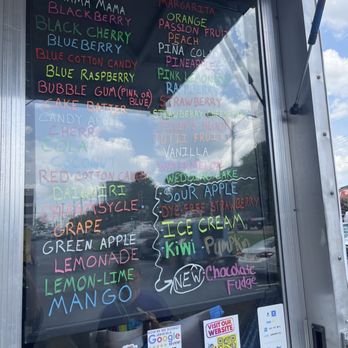 MAMA
BLACKBERRY
BLACK CHERRY
BLUEBERRY
BLUE COTTON CANDY
BLUE RASPBERRY
BUBBLE GUM (PINK OR BLUE)
CAKE BATTER
CANDY
CHERRY
COLA
RED COTTON CANDY
DAIQUIRI
GRAPE
GREEN APPLE
LEMONADE
LEMON-LIME
MANGO
MARGARITA
ORANGE
PASSION FRUIT
PEACH
PIÑA COLADA
PINEAPPLE
PINK
STRAWBERRY
STRAWBERRY
TUTTI FRUITTI
VANILLA
WATERMELON
WEDDING CAKE
SOUR APPLE
DYE-FREE STRAWBERRY
ICE CREAM
Kiwi · Pumpkin
NEW Chocolate
Fudge
Google
VISIT OUR
WEBSITE